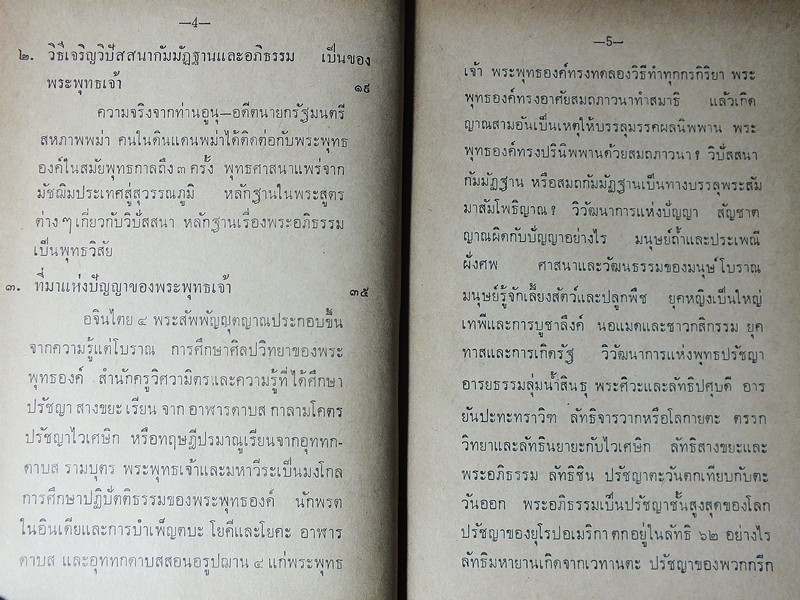 —4—
๒. วิธีเจริญวิปัสสนากัมมัฏฐานและอภิธรรม เป็นของ
พระพุทธเจ้า ๑๙
ความจริงจากท่านอูนุ—อดีตนายกรัฐมนตรี
สหภาพพม่า คนในดินแดนพม่าได้ติดต่อกับพระพุทธ
องค์ในสมัยพุทธกาลถึง ๓ ครั้ง พุทธศาสนาแพร่จาก
มัชฌิมประเทศสู่สุวรรณภูมิ หลักฐานในพระสูตร
ต่าง ๆ เกี่ยวกับวิปัสสนา หลักฐานเรื่องพระอภิธรรม
เป็นพุทธวิสัย
๓. ที่มาแห่งปัญญาของพระพุทธเจ้า ๓๕
อจินไตย ๔ พระสัพพัญญุตญาณประกอบขึ้น
จากความรู้แต่โบราณ การศึกษาศิลปวิทยาของพระ
พุทธองค์ สำนักครูวิศวามิตรและความรู้ที่ได้ศึกษา
ปรัชญา สางขยะ เรียน จาก อาฬารดาบส กาลามโคตร
ปรัชญาไวเศษิก หรือทฤษฎีปรมาณูเรียนจากอุททก-
ดาบส รามบุตร พระพุทธเจ้าและมหาวีระเป็นมงโกล
การศึกษาปฏิบัตติธรรมของพระพุทธองค์ นักพรต
ในอินเดียและการบำเพ็ญตบะ โยคีและโยคะ อาฬาร
ดาบส และอุททกดาบสสอนอรูปฌาน ๔ แก่พระพุทธ
—5—
เจ้า พระพุทธองค์ทรงทดลองวิธีทำทุกกรกิริยา พระ
พุทธองค์ทรงอาศัยสมถภาวนาทำสมาธิ แล้วเกิด
ญาณสามอันเป็นเหตุให้บรรลุมรรคผลนิพพาน พระ
พุทธองค์ทรงปรินิพพานด้วยสมถภาวนา ? วิปัสสนา
กัมมัฏฐาน หรือสมถกัมมัฏฐานเป็นทางบรรลุพระสัม
มาสัมโพธิญาณ ? วิวัฒนาการแห่งปัญญา สัญชาต
ญาณผิดกับปัญญาอย่างไร มนุษย์ถ้ำและประเพณี
ฝังศพ ศาสนาและวัฒนธรรมของมนุษย์โบราณ
มนุษย์รู้จักเลี้ยงสัตว์และปลูกพืช ยุคหญิงเป็นใหญ่
เทพีและการบูชาลึงค์ นอแมดและชาวกสิกรรม ยุค
ทาสและการเกิดรัฐ วิวัฒนาการแห่งพุทธปรัชญา
อารยธรรมลุ่มน้ำสินธุ พระศิวะและลัทธิปศุบดี อาร
ยันปะทะทราวิฑ ลัทธิจารวากหรือโลกายตะ ตรรก
วิทยาและลัทธินยายะกับไวเศษิก ลัทธิสางขยะและ
พระอภิธรรม ลัทธิชิน ปรัชญาตะวันตกเทียบกับตะ
วันออก พระอภิธรรมเป็นปรัชญาชั้นสูงสุดของโลก
ปรัชญาของยุโรปอเมริกา ตกอยู่ในลัทธิ ๖๒ อย่างไร
ลัทธิมหายานเกิดจากเวทานตะ ปรัชญาของพวกกรีก